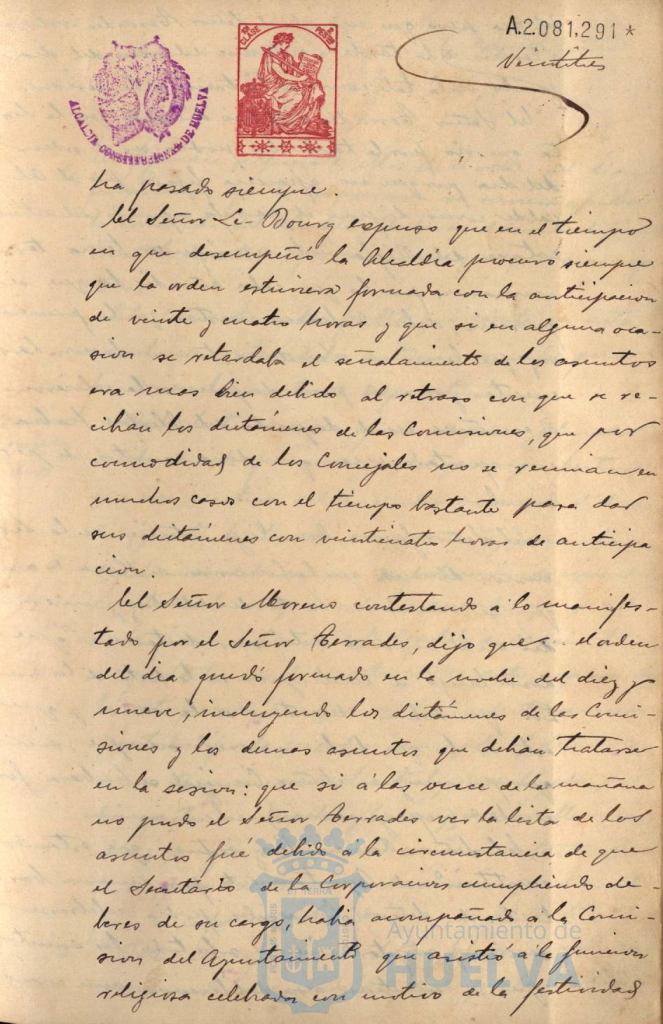 A.2081,291*
Veintitres
CLASE
PESETAS
ALCALDIA CONSTITUCIONAL DE HUELVA
ha pasado siempre.
El Señor Le-Bourg expuso que en el tiempo
en que desempeñó la Alcaldia procuró siempre
que la orden estuviera formada con la anticipacion
de veinte y cuatro horas y que si en alguna oca-
sion se retardaba el señalamiento de los asuntos
era mas bien debido al retraso con que se re-
cibian los dictámenes de las Comisiones, que por
comodidad de los Concejales no se reunian en
muchos casos con el tiempo bastante para dar
sus dictámenes con veinticuatro horas de anticipa
cion.
El Señor Moreno contestando á lo manifes-
tado por el Señor Terrades, dijo que el orden
del dia quedó formado en la noche del diez y
nueve, incluyendo los dictámenes de las Comi-
siones y los demas asuntos que debian tratarse
en la sesion: que si á las once de la mañana
no pudo el Señor Terrades ver la lista de los
asuntos fué debido á la circunstancia de que
el Secretario de la Corporacion cumpliendo de-
beres de su cargo, habia acompañado á la Comi-
sion del Ayuntamiento que asistió á la funcion
religiosa celebrada con motivo de la festividad
Ayuntamiento de
HUELVA